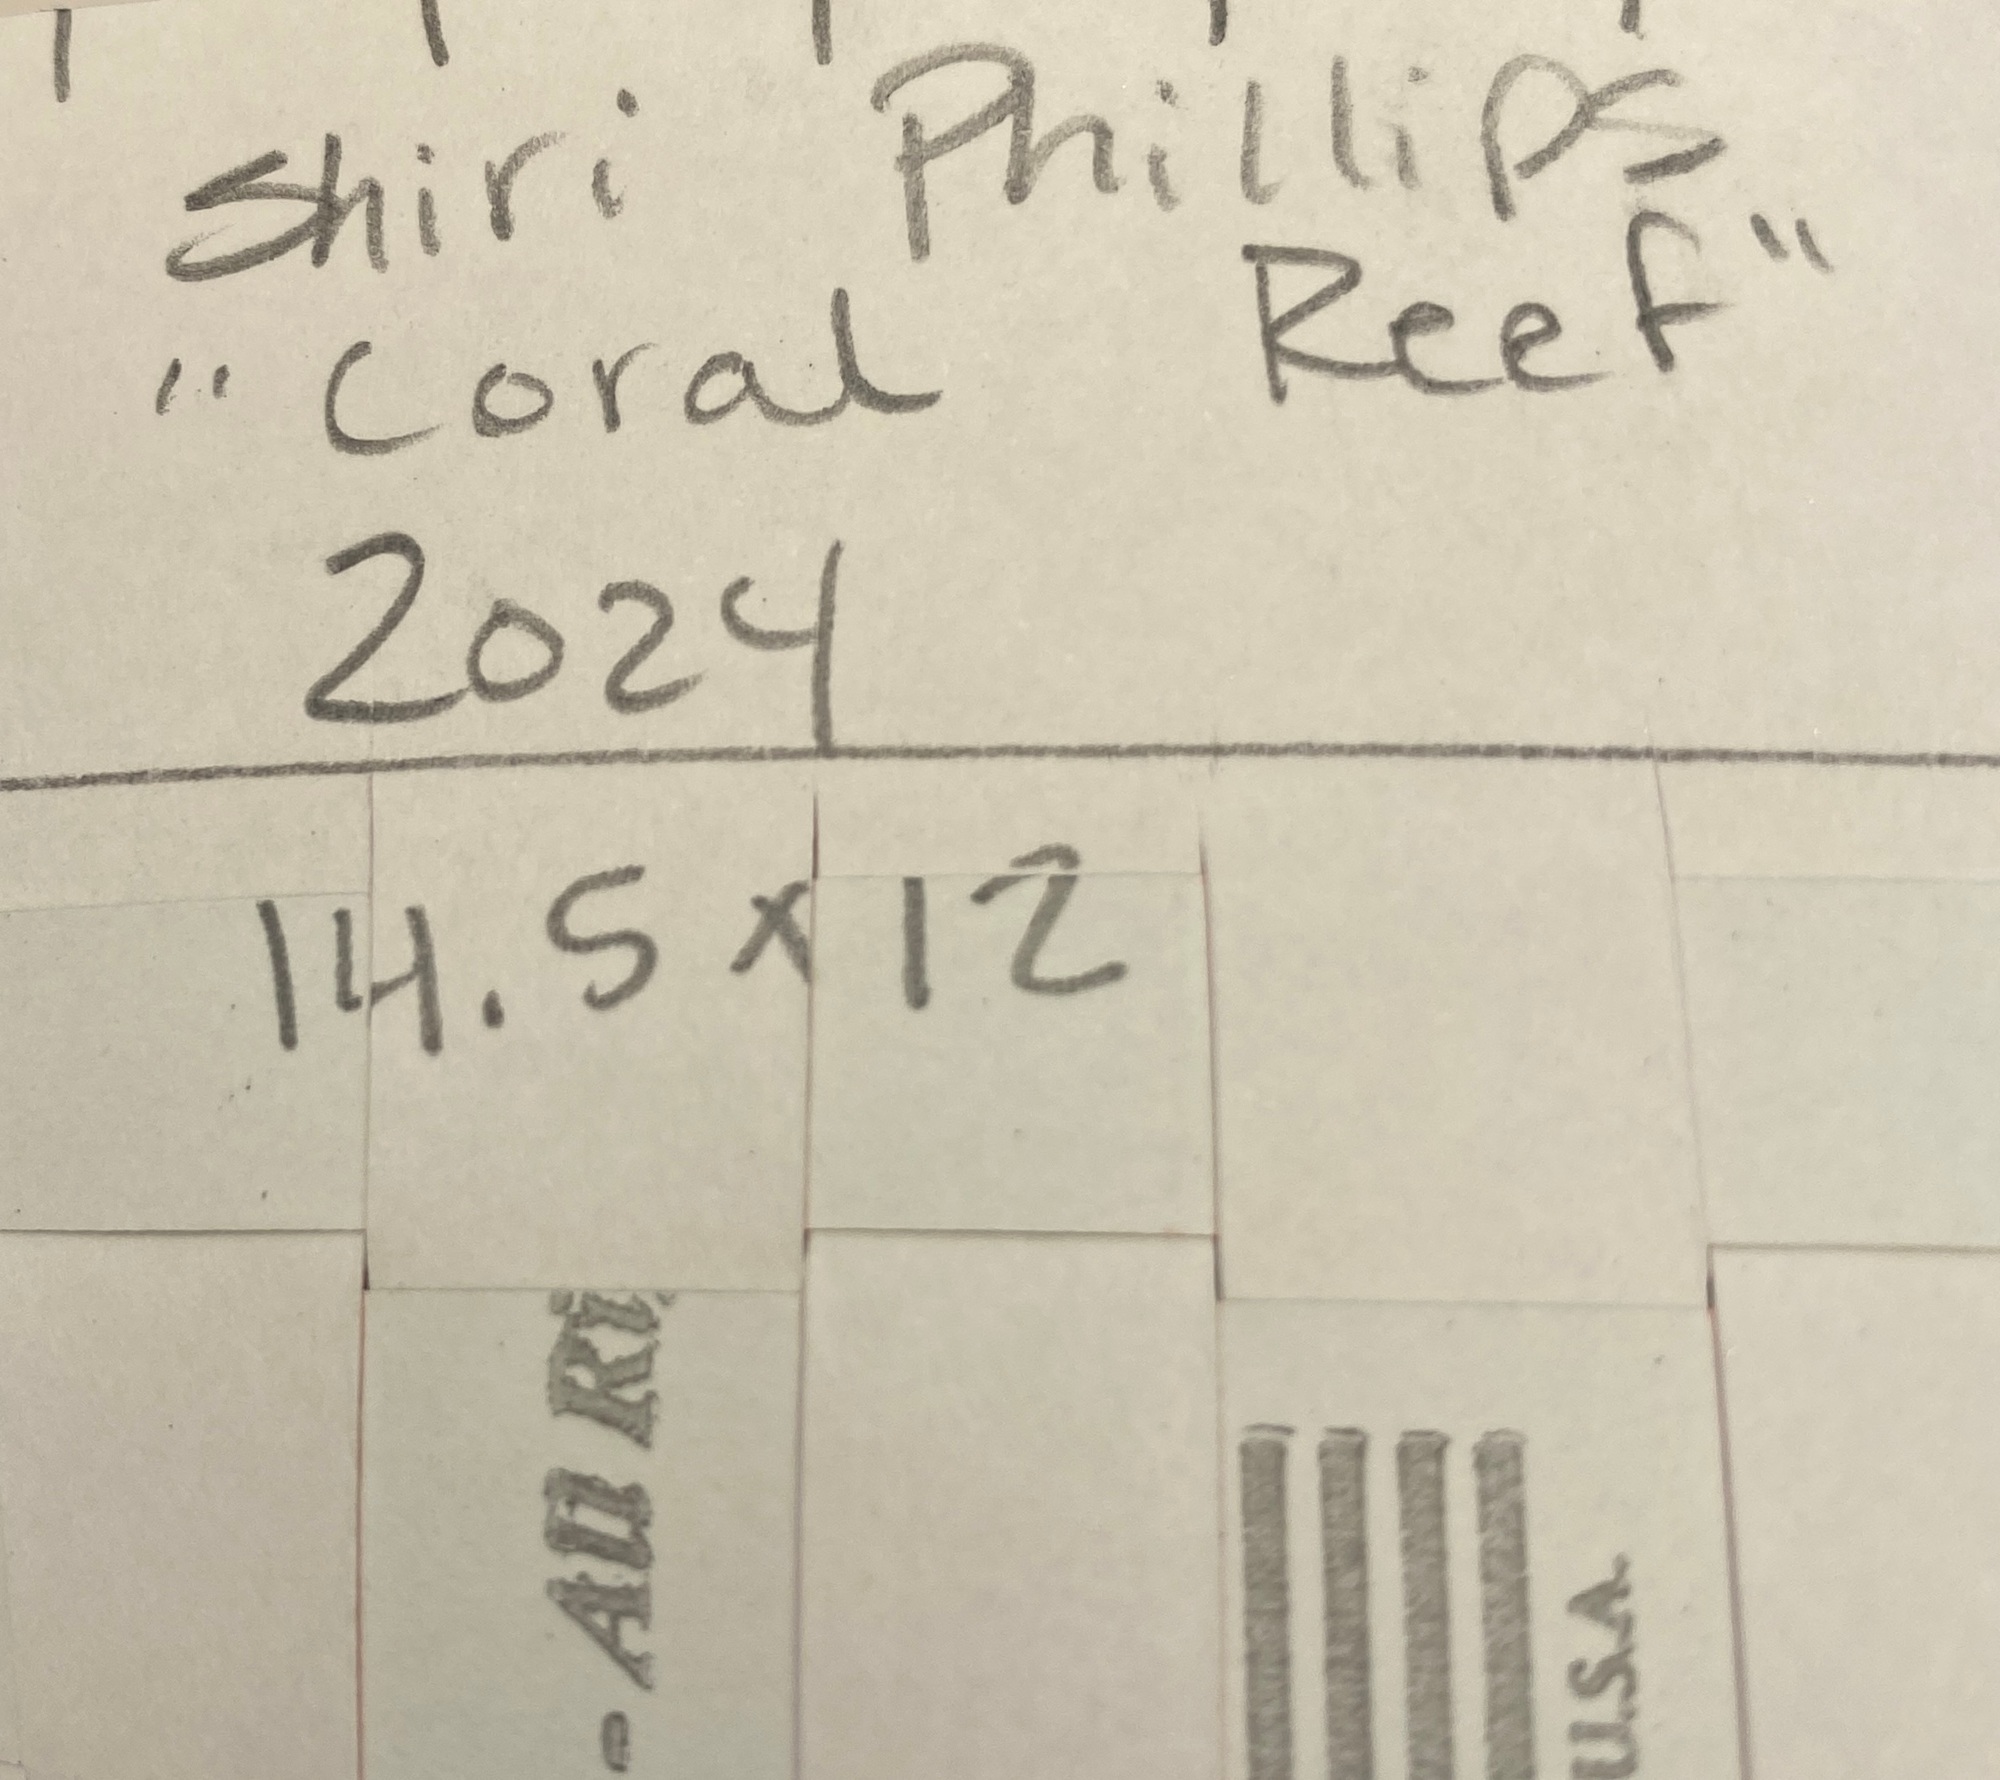 Shiri Phillips
"Coral Reef"
2024
14.5 x 12
- All Ri
U.S.A.